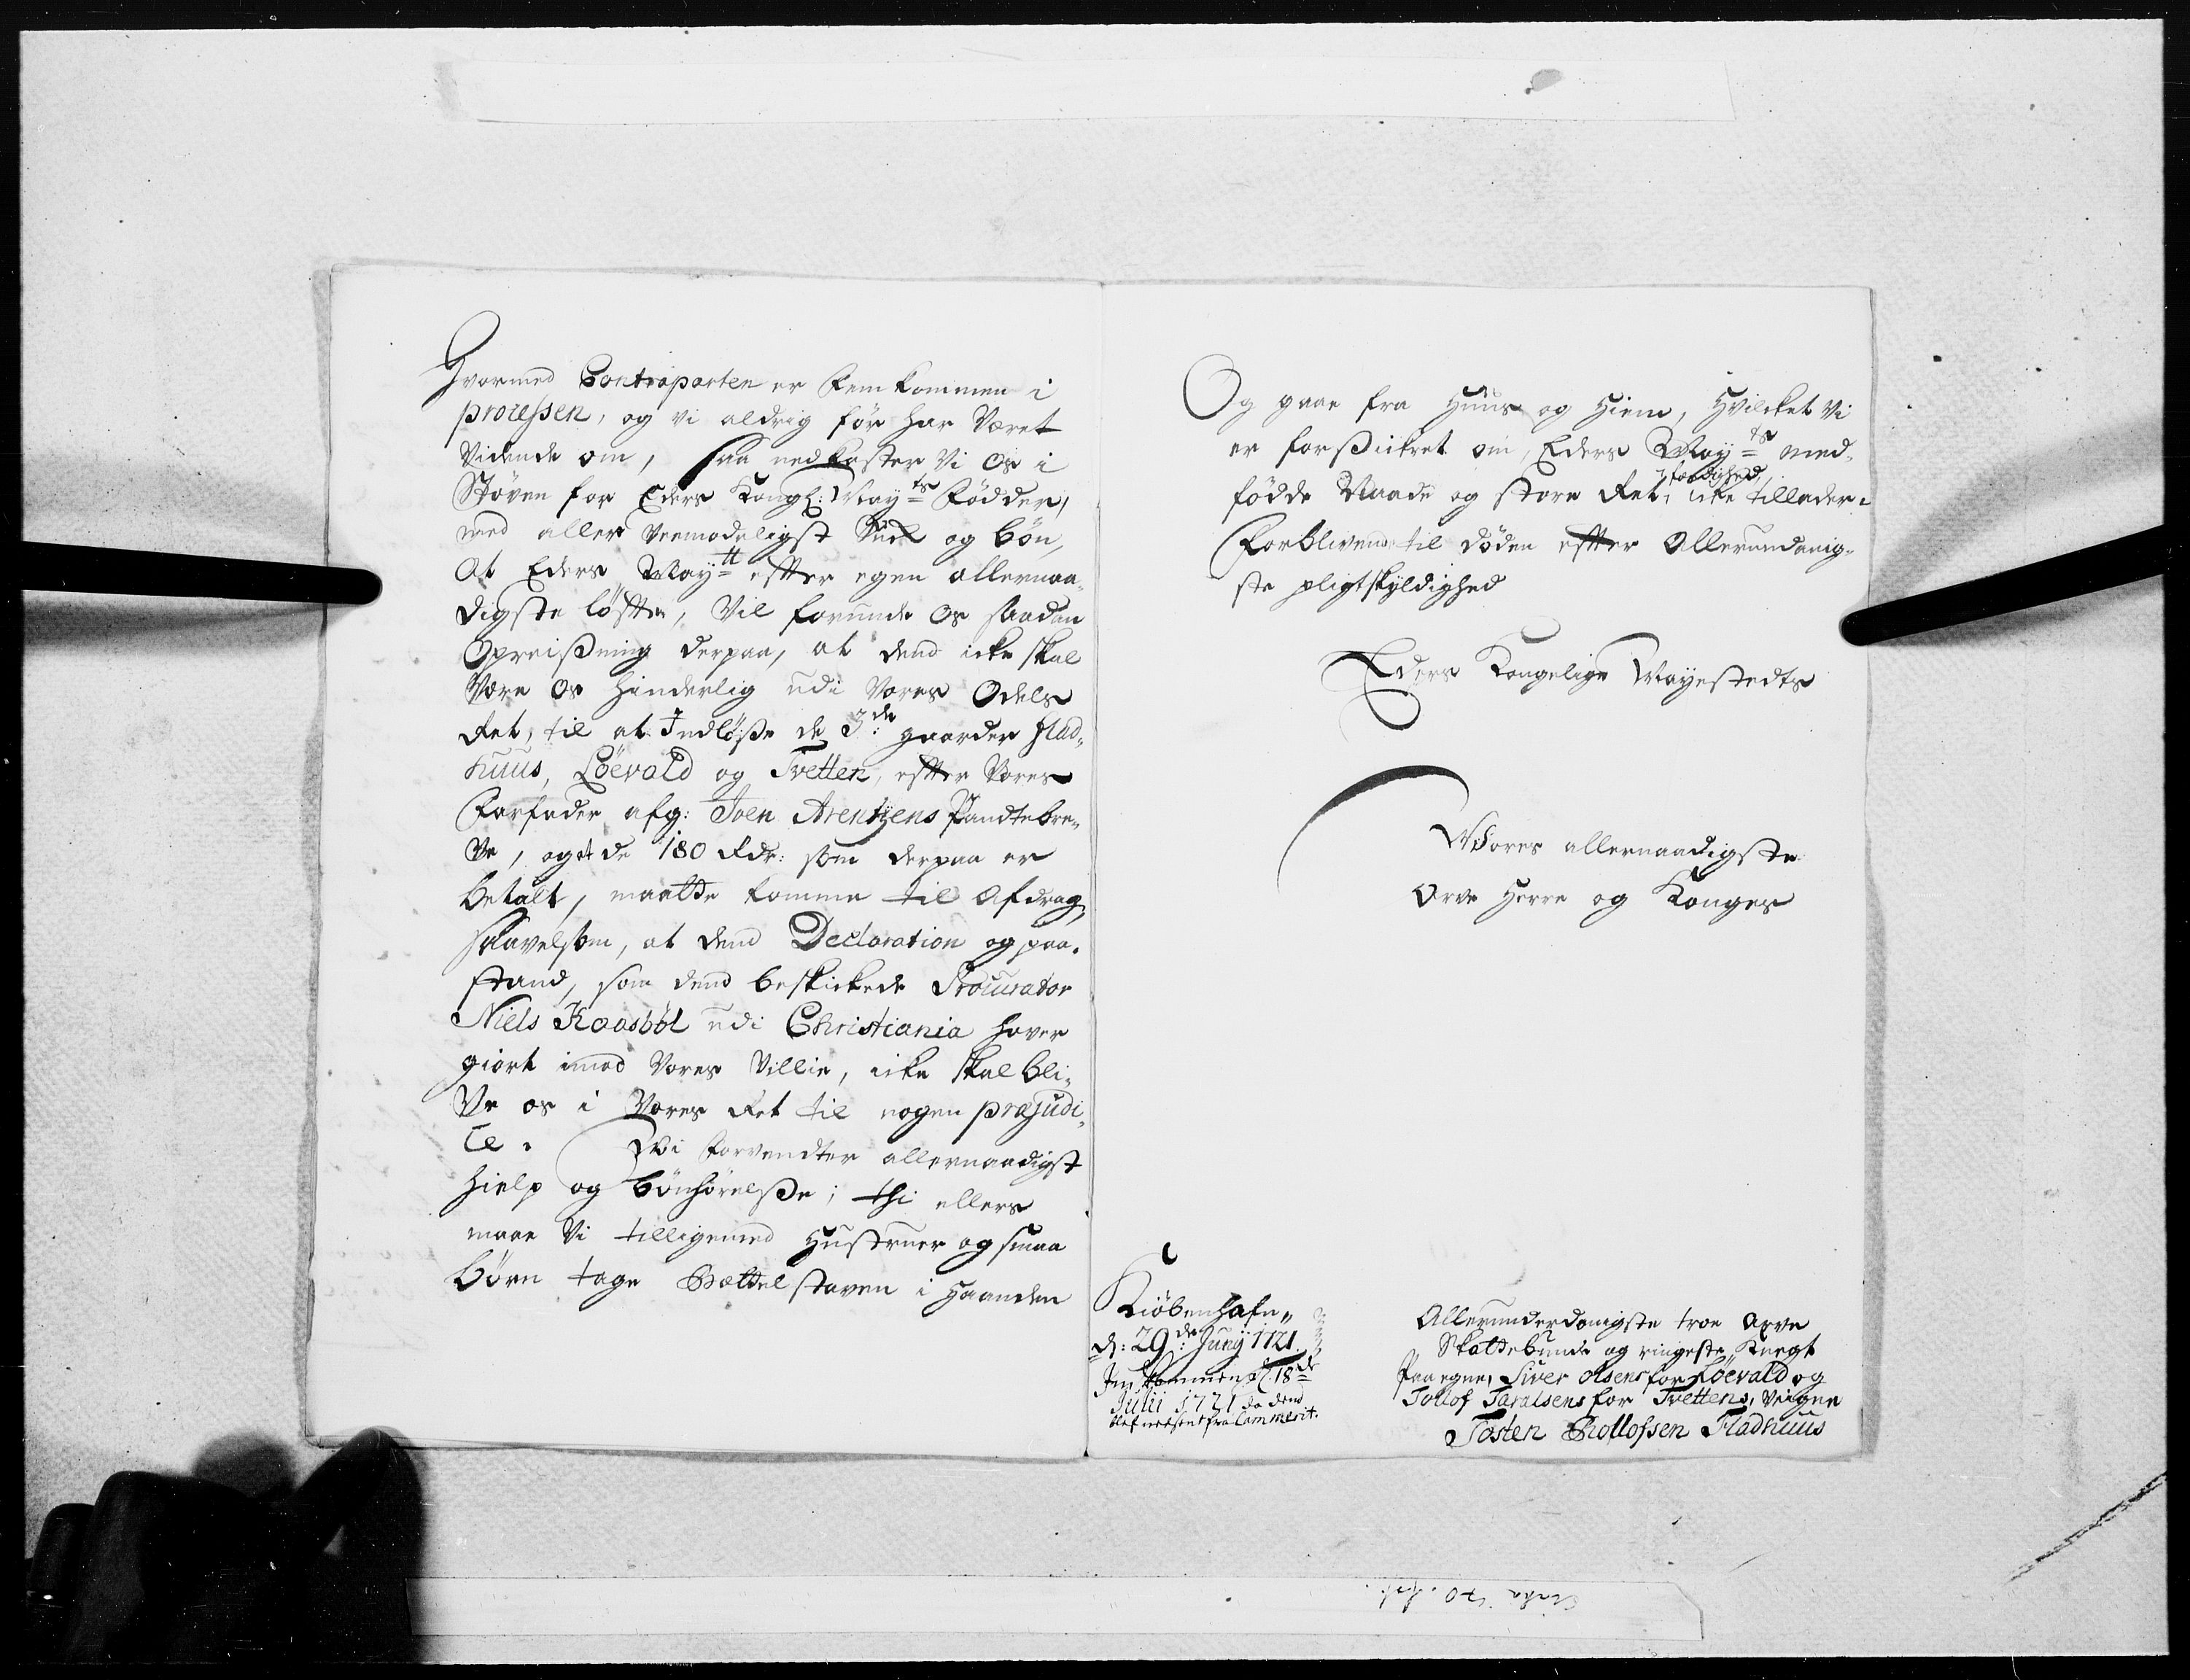 Hvormed Contraparten er Remkommen i
proceßen, og vi aldrig før har Været
Vidende om, saa nedkaster Vi os i
Støven for Eders Kongl: May:ts Fødder,
med aller Veemodeligst Suk og bøn,
At Eders May:tt efter egen allernaa¬
digste løffte, Vil forunde os saadan
Opreißning derpaa, at dend icke skal
Være os hinderlig udi Vores Odels
Ret, til at Indløße de 3:de gaarder Flad¬
huus, Löevald og Tvetten, efter Vores
Farfader afg: Joen Arentzens Pandtebre¬
Ve, og at de 180 Rdr: som derpaa er
betalt, maatte komme til Afdrag,
saavelsom, at dend Declaration og paa¬
stand, som dend beskickede Procurator
Niels Kaasböl udi Christiania haver
giort imod Vores Villie, icke skal bli¬
Ve os i Vores Ret til nogen præjudi¬
ce. Wi forvendter allernaadigst
hielp og bönhørelße; thi ellers
maae Vi tilligemed Hustruer og smaa
børn tage Bettelstaven i Haanden
Og gaae fra Huus og Hiem, Hvilcket Vi
er forßickret om, Eders May:ts med¬
födde Naade og store Ret¬
færdighed,
icke tillader.
Forblivende til døden effter Allerundanig¬
ste pligtskyldighed
Eders Kongelige Mayestedts
Wores allernaadigste
Arve Herre og Konges
Kiöbenhafn
d: 29:de Junij 1721.
Ind kommen d. 18de
Julii 1721 da dend
blef neersent fra Commerit.
Allerunderdanigste troe Arve
Skattebunde og ringeste Knegt
Paa egne, Siver Olsens for Löevald og
Tollof Taralsens for Tvettens, Veigne
Tosten Rollofsen Fladhuus